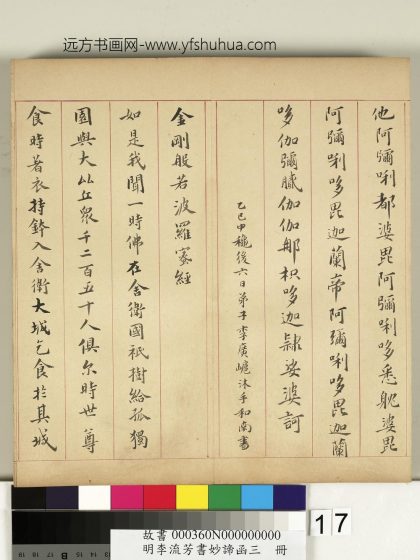 远方书画网-www.yfshuhua.com
他阿彌唎都婆毘阿彌唎哆悉躭婆毘
阿彌唎哆毘迦蘭帝阿彌唎哆毘迦蘭
哆伽彌膩伽伽那枳哆迦隸娑婆訶
乙巳中穐後六日弟子李廣嶬沐手和南書
金剛般若波羅蜜經
如是我聞一時佛在舍衛國祇樹給孤獨
園與大比丘眾千二百五十人俱尔時世尊
食時著衣持鉢入舍衛大城乞食於其城
17
故書 000360N000000000
明李流芳書妙諦函三 冊